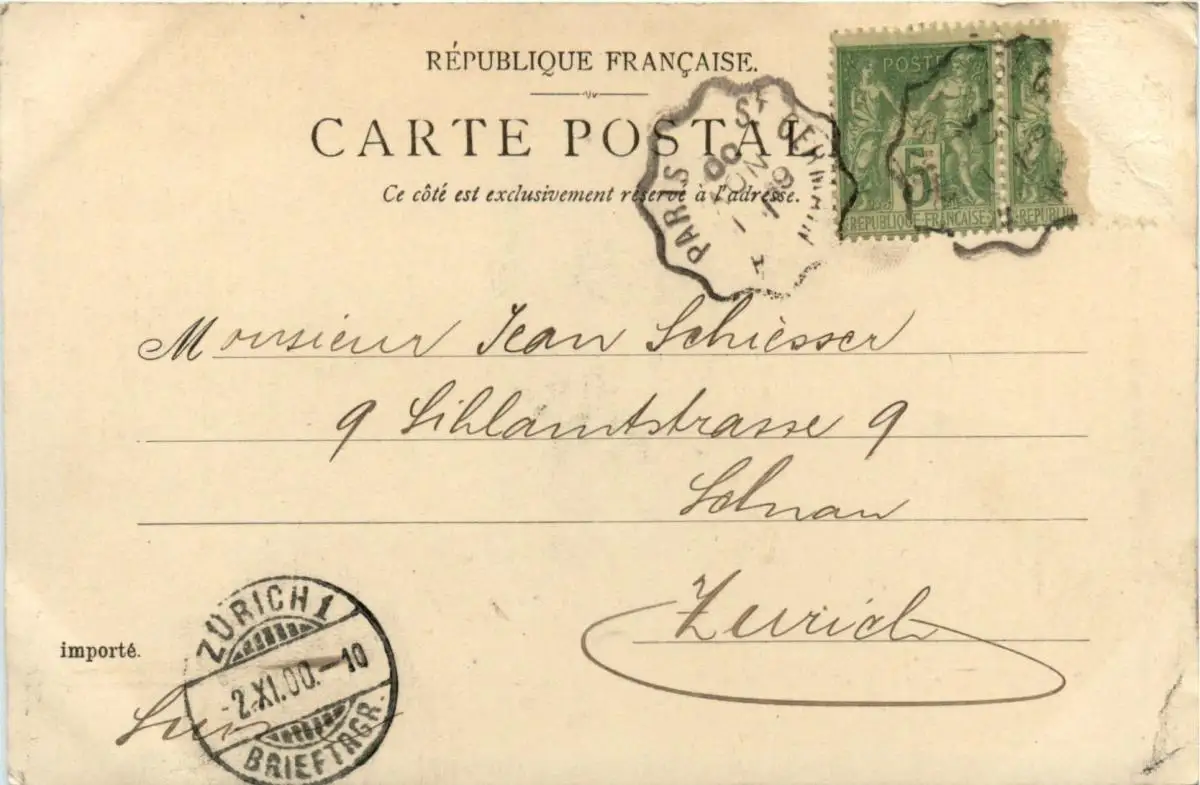 RÉPUBLIQUE FRANÇAISE.
CARTE POSTAL
Ce côté est exclusivement réservé à l'adresse.
POSTE
5
RÉPUBLIQUE FRANÇAISE
REPUBLIQ
PARIS St GERMAIN
1 NOV 00
Monsieur Jean Schiesser
9 Sihlamtstrasse 9
Selnau
Zurich
importé.
ZÜRICH 1
-2.XI.00.-10
BRIEFTRGR.